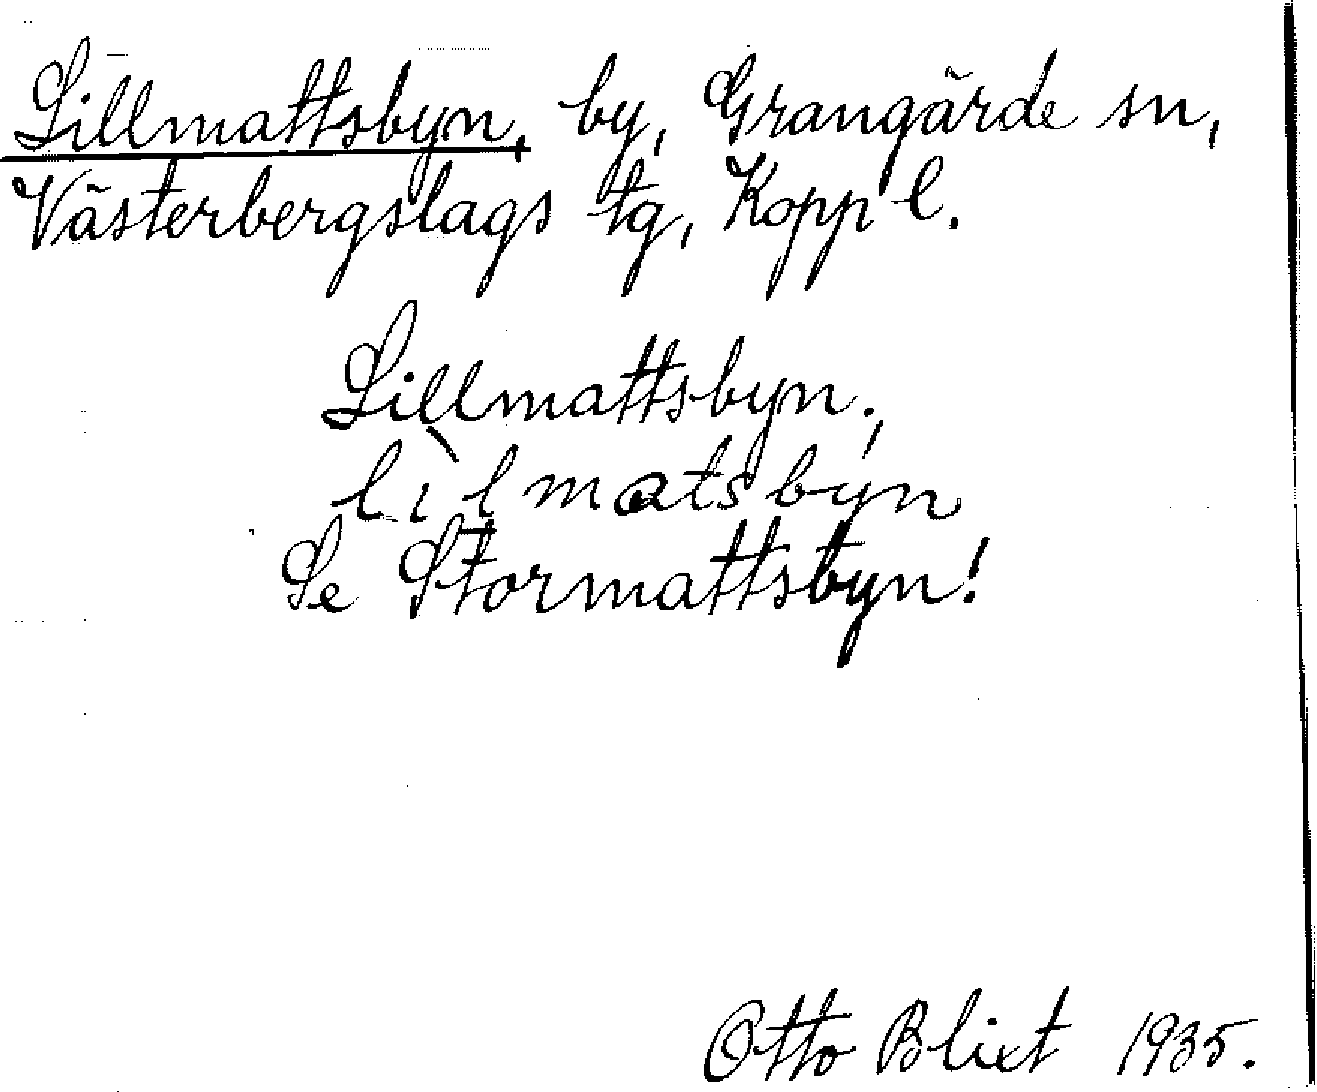 Lillmattsbyn, by, Grangärde sn,
Västerbergslags tg, Kopp l.
Lillmattsbyn;
lìlmatsbyn
Se Stormattsbyn!
Otto Blixt 1935.